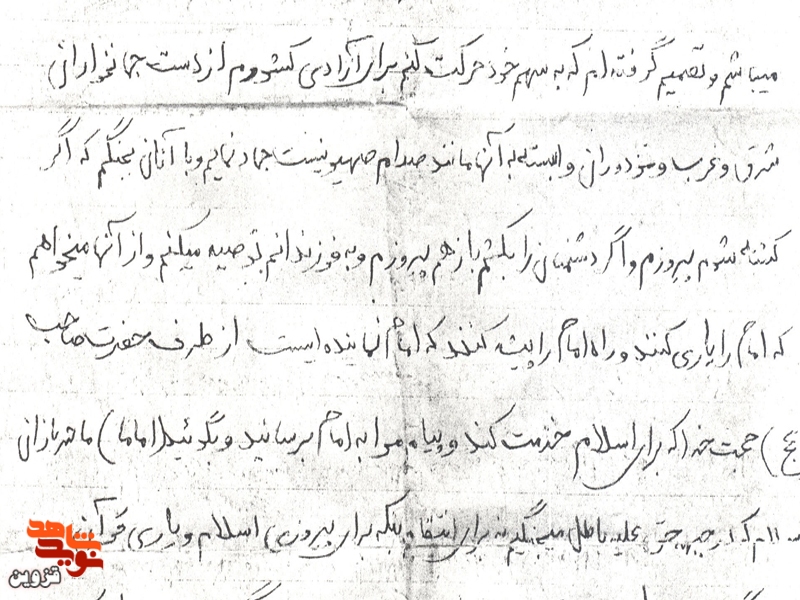 میباشم و تصمیم گرفته ام که به سهم خود حرکت کنم برای آزادی کشورم از دست جهانخوارانی
شرق و غرب و مزدورانی وابسته به آنها مانند صدام صهیونیست جهاد نمایم و با آنان بجنگم که اگر
کشته شوم پیروزم و اگر دشمنان را بکشم بازهم پیروزم و به فرزندانم توصیه میکنم و از آنها میخواهم
که امام را یاری کنند و راه امام را پیشه کنند که امام نماینده ایست از طرف حضرت صاحب
(عج) حجت خدا که برای اسلام خدمت کند و پیام مرا به امام برسانید و بگوئید (اماما) ما سربازانی
که در جبهه حق علیه باطل میجنگیم نه برای انتقام بلکه برای پیروزی اسلام و یاری قرآن
نوید شاهد
قزوین